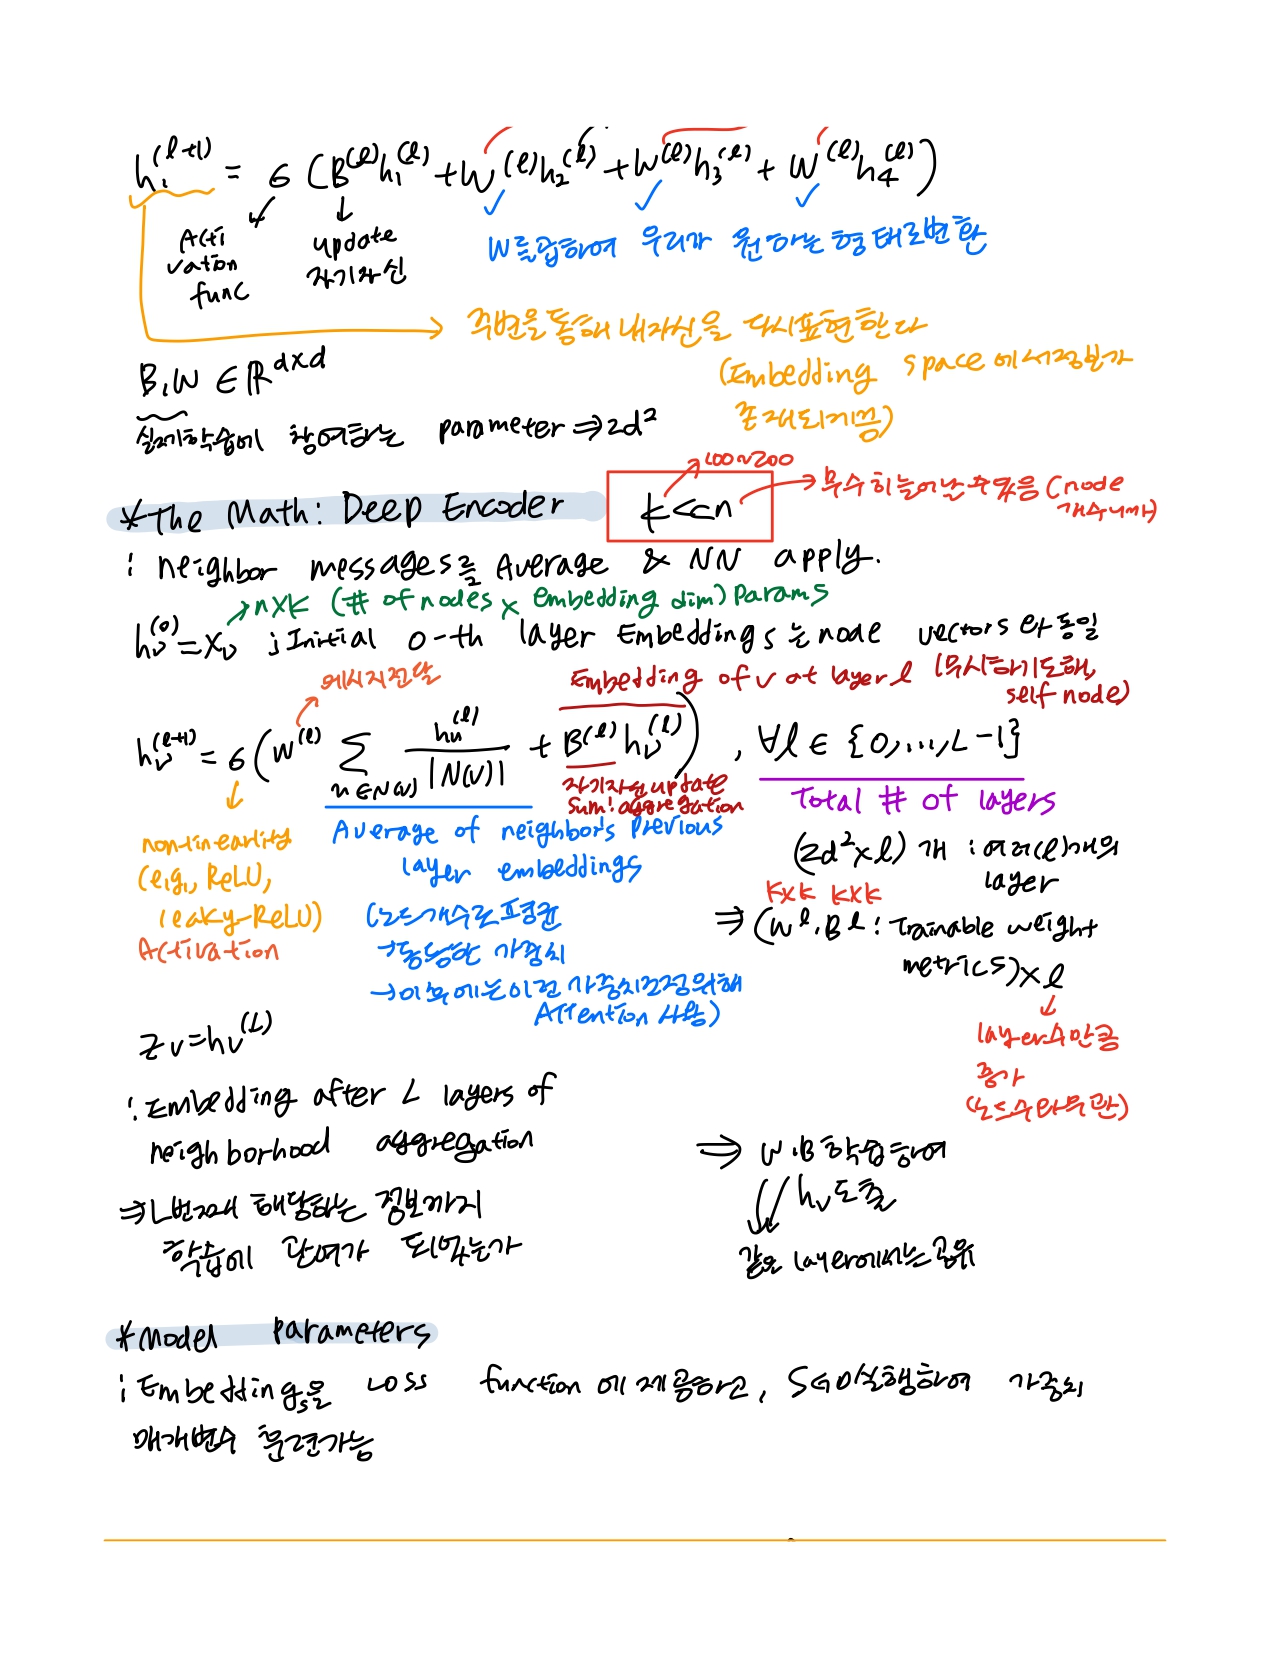 h₁^(l+1) = σ (B^(l)h₁^(l) + W^(l)h₂^(l) + W^(l)h₃^(l) + W^(l)h₄^(l))
Acti
vation
func
update
자기자신
W를 곱하여 우리가 원하는 형태로 변환
주변을 통해 내자신을 다시 표현한다
(Embedding space에서 정보가
존재되게끔)
B, W ∈ ℝ^d×d
실제 학습에 참여하는 parameter ⇒ 2d²
*The Math: Deep Encoder
k<<n
→ 100~200
→ 무수히 늘어날 수 있음 (node
개수니까)
: neighbor messages를 Average & NN apply.
→ n×k (# of nodes × embedding dim) Params
h_v^(0) = x_v ; Initial 0-th layer Embeddings는 node vectors와 동일
메시지전달
Embedding of v at layer l (무시하기도해,
self node)
h_v^(l+1) = σ(W^(l) Σ_{u∈N(v)} h_u^(l) / |N(v)| + B^(l) h_v^(l)), ∀l ∈ {0,...,L-1}
자기자신 update
Sum: aggregation
Total # of layers
non-linearity
(e.g., ReLU,
leaky-ReLU)
Activation
Average of neighbor's previous
layer embeddings
(노드개수로 평균
→ 동등한 가중치
→ 이후에는 이런 가중치조정 위해
Attention 사용)
(2d²×l) 개 : 여러(l)개의
layer
k×k k×k
⇒ (W^l, B^l : Trainable weight
metrics) × l
layer수만큼
증가
(노드수와 무관)
z_v = h_v^(L)
: Embedding after L layers of
neighborhood aggregation
⇒ L번째에 해당하는 정보까지
학습에 관여가 되었는가
⇒ W, B 학습하여
h_v 도출
같은 layer에서는 공유
*Model Parameters
: Embeddings을 Loss function에 제공하고, SGD실행하여 가중치
매개변수 훈련가능